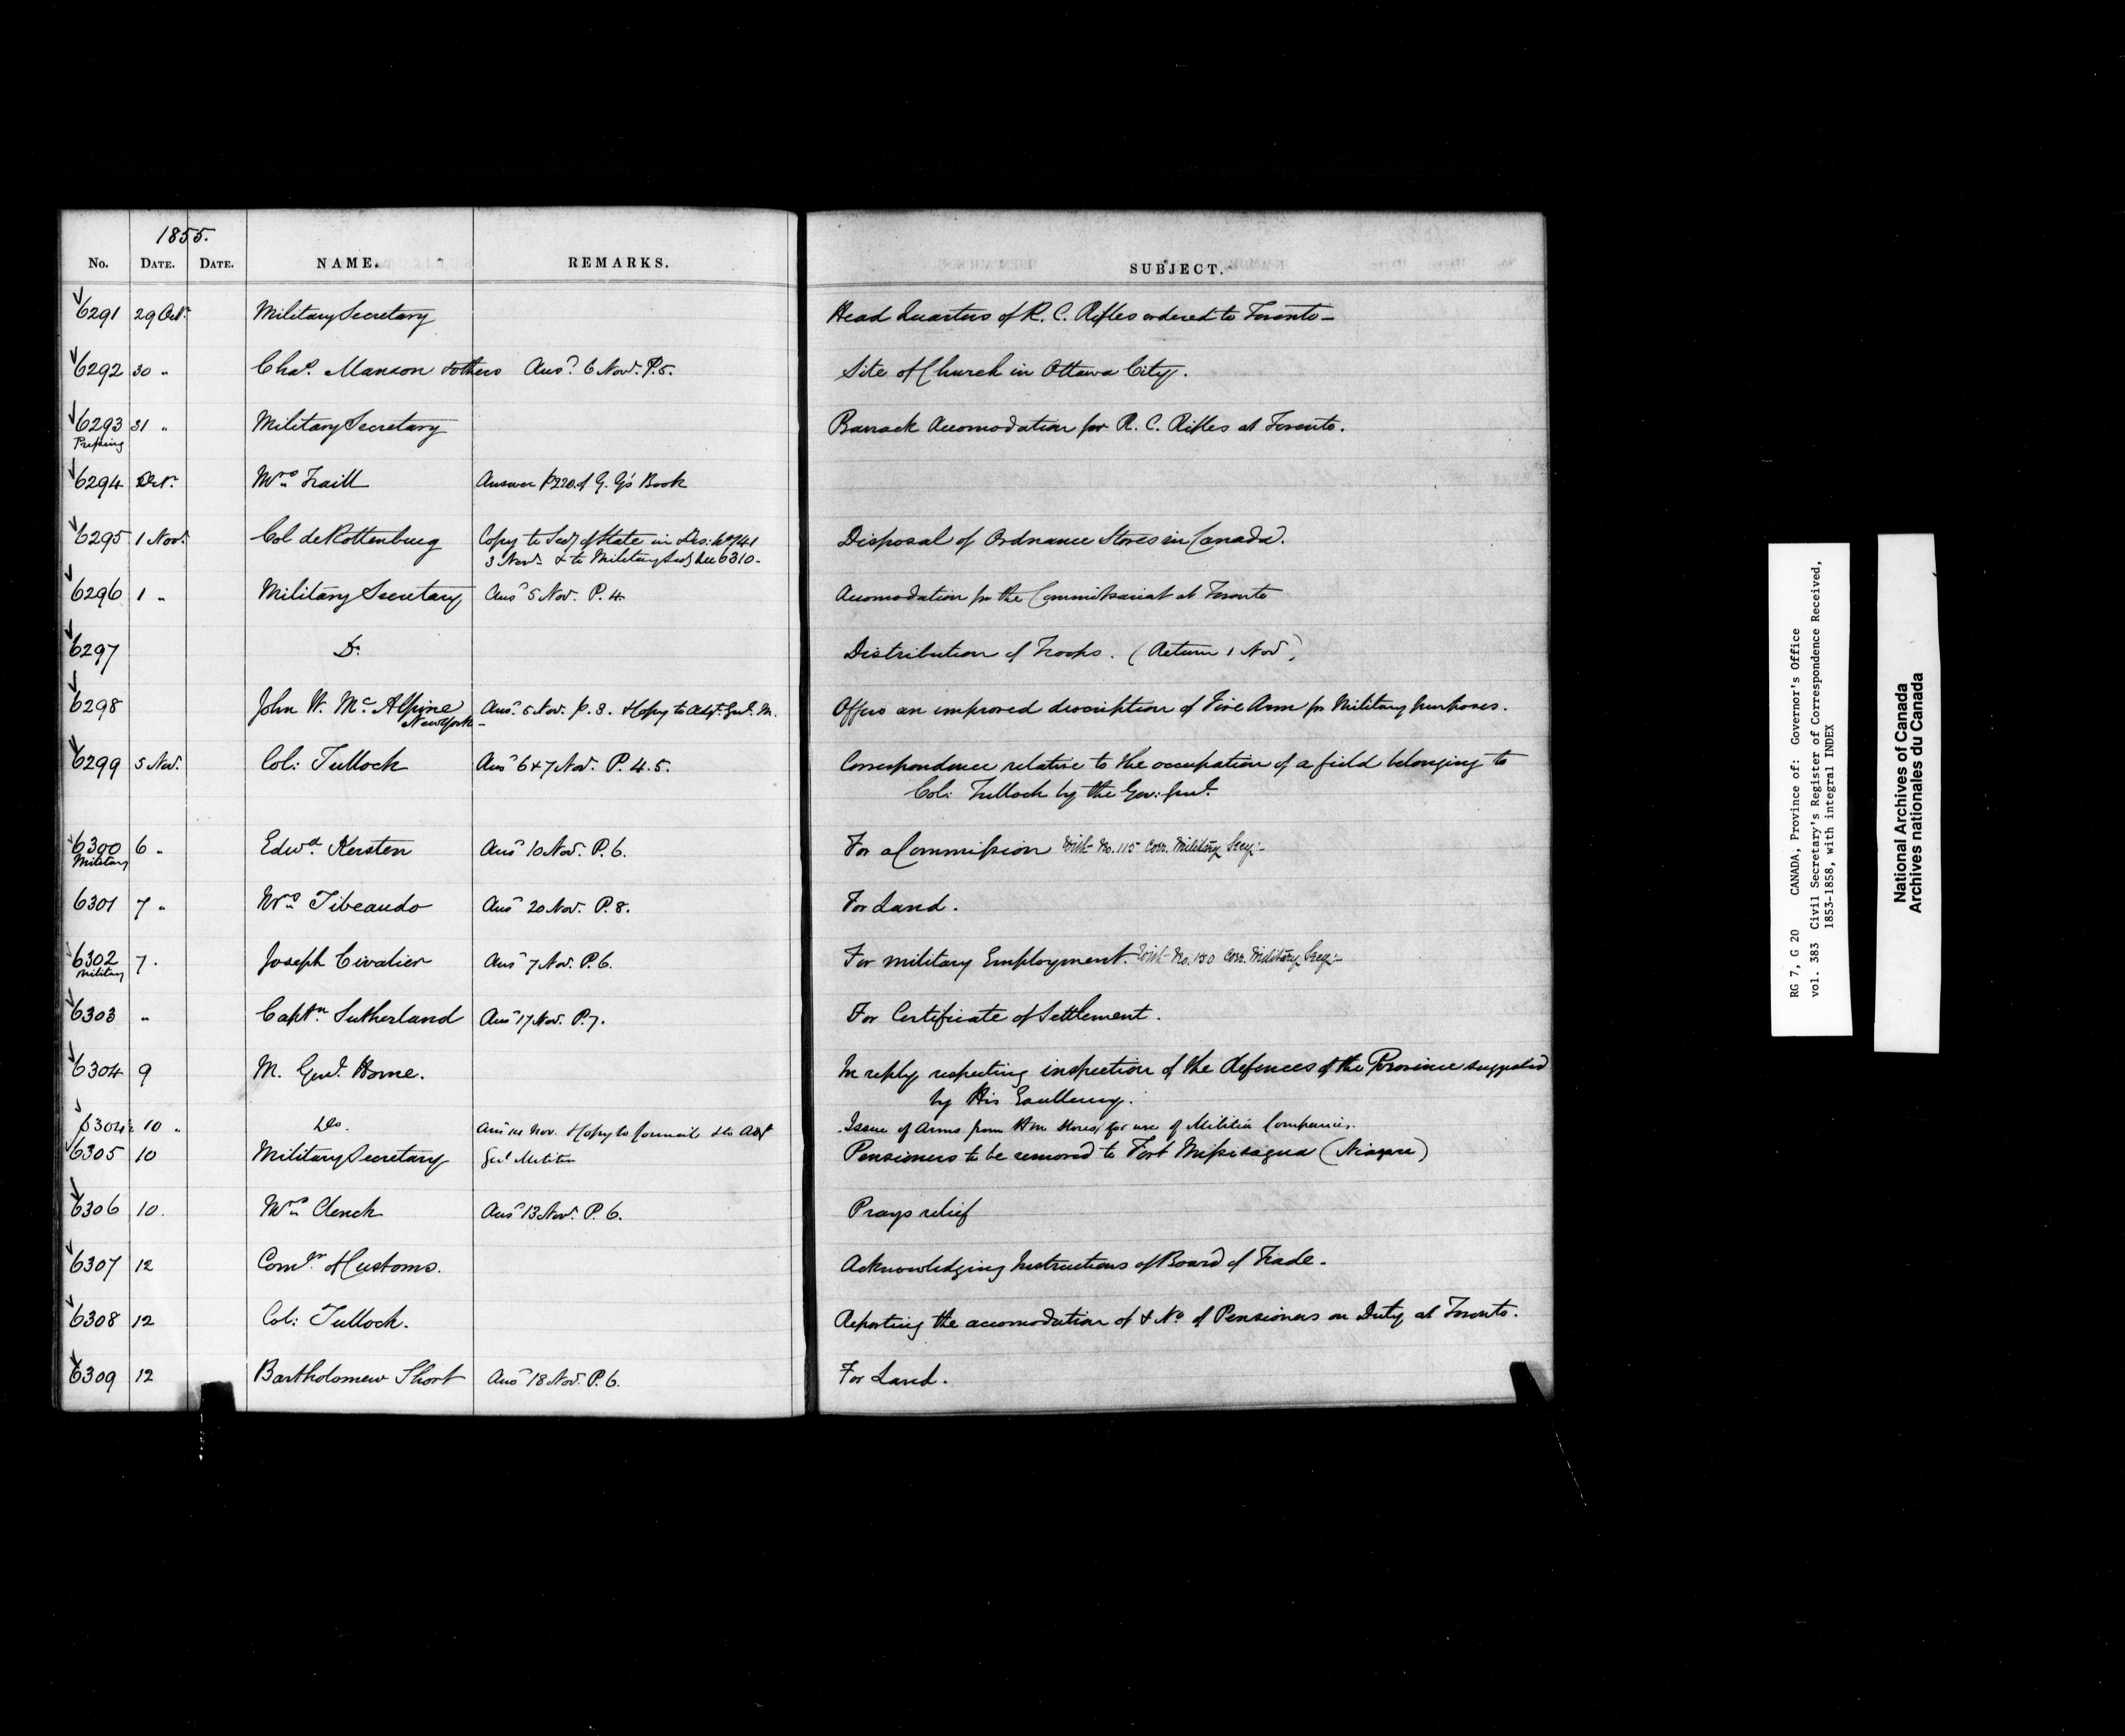 1855.
No. DATE. DATE. NAME. REMARKS. SUBJECT.
6291 29 Octr. Military Secretary Head Quarters of R. C. Rifles ordered to Toronto –
6292 30 " Chas. Manson & others Ansd. 6 Nov. P. 5. Site of Church in Ottawa City.
6293 31 " Military Secretary Barrack Accomodation for R. C. Rifles at Toronto.
6294 Octr. Mrs. Traill Answer P 220 of G. G's Book
6295 1 Nov. Col de Rottenburg Copy to Secy of State in Des: No 141 Disposal of Ordnance Stores in Canada.
3 Nov. & to Military Secy See 6310 –
6296 1 " Military Secretary Ansd 5 Nov. P. 4. Accomodation for the Commissariat at Toronto
6297 Do. Distribution of Troops. (Return 1 Nov)
6298 John W. Mc Alpine Ansd. 5 Nov. P. 3. & Copy to Adjt. Genl. M. Offers an improved description of Fire Arm for Military purposes.
New York –
6299 5 Nov. Col: Tulloch Ansd 6 & 7 Nov. P. 4. 5. Correspondence relative to the occupation of a field belonging to
Col: Tulloch by the Gov: Genl.
6300 6 " Edwd. Kersten Ansd 10 Nov. P. 6. For a Commission With No. 115 Corr. Military Secy: –
Military
6301 7 " Mrs. Tibeaudo Ansd 20 Nov. P. 8. For Land.
6302 7. Joseph Civalier Ansd 7 Nov. P. 6. For military Employment. With No. 130 Corr. Military Secy: –
Military
6303 " Captn. Sutherland Ansd 17 Nov. P. 7. For Certificate of Settlement.
6304 9 M. Genl. Home. In reply respecting inspection of the defences of the Province suggested
by His Excellency.
6304½ 10 " Do. Ansd 14 Nov. & Copy to Council & to Adjt Issue of Arms from Stores for use of Militia Companies.
6305 10 Military Secretary Genl Militia Pensioners to be removed to Fort Missisagua (Niagara)
6306 10. Mrs. Clench Ansd 13 Nov. P. 6. Prays relief
6307 12 Comr. of Customs. Acknowledging Instructions of Board of Trade.
6308 12 Col: Tulloch. Reporting the accomodation of & No. of Pensioners on Duty at Toronto.
6309 12 Bartholomew Short Ansd 18 Nov. P. 6. For Land.
RG 7, G 20 CANADA, Province of: Governor's Office
vol. 383 Civil Secretary's Register of Correspondence Received,
1853-1858, with integral INDEX
National Archives of Canada
Archives nationales du Canada